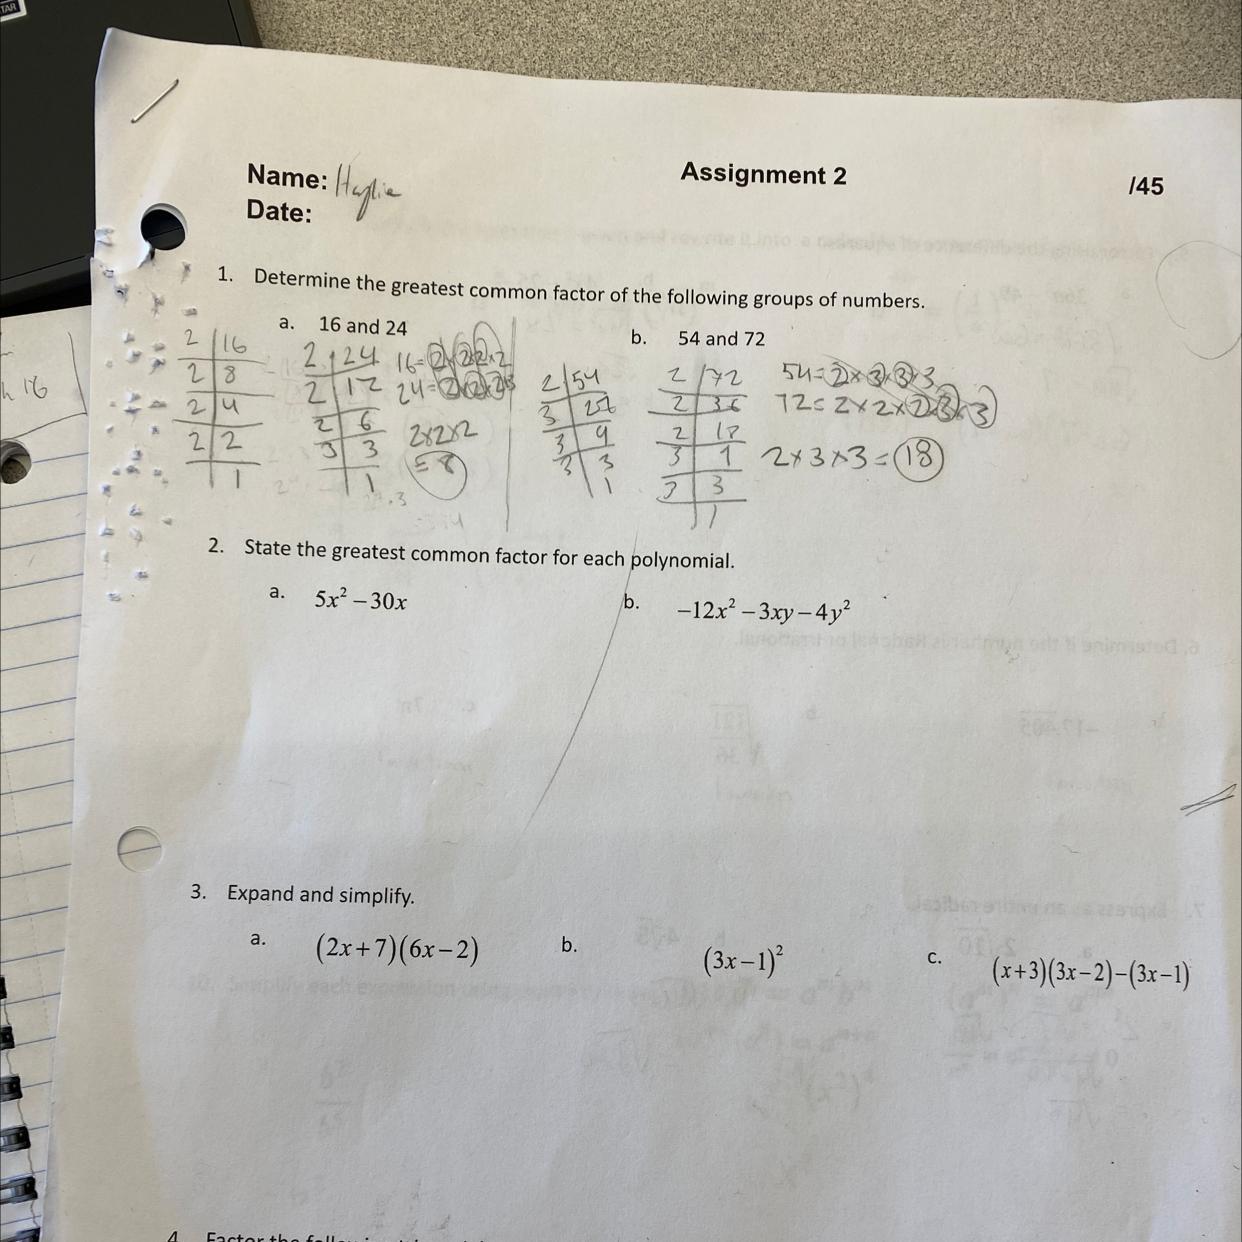 TAR
Name: Haylie
Assignment 2
/45
Date:
1. Determine the greatest common factor of the following groups of numbers.
a. 16 and 24
b. 54 and 72
2 16
2 8
2 4
2 2
1
2 24
2 12
2 6
3 3
1
16=2×2×2×2
24=2×2×2×3
2×2×2
=8
2 54
3 27
3 9
3 3
1
2 72
2 36
2 18
3 9
3 3
1
54=2×3×3×3
72=2×2×2×3×3
2×3×3=18
h 16
2. State the greatest common factor for each polynomial.
a. 5x² – 30x
b. –12x² – 3xy – 4y²
3. Expand and simplify.
a. (2x+7)(6x–2)
b. (3x–1)²
c. (x+3)(3x–2)–(3x–1)
4. Factor the